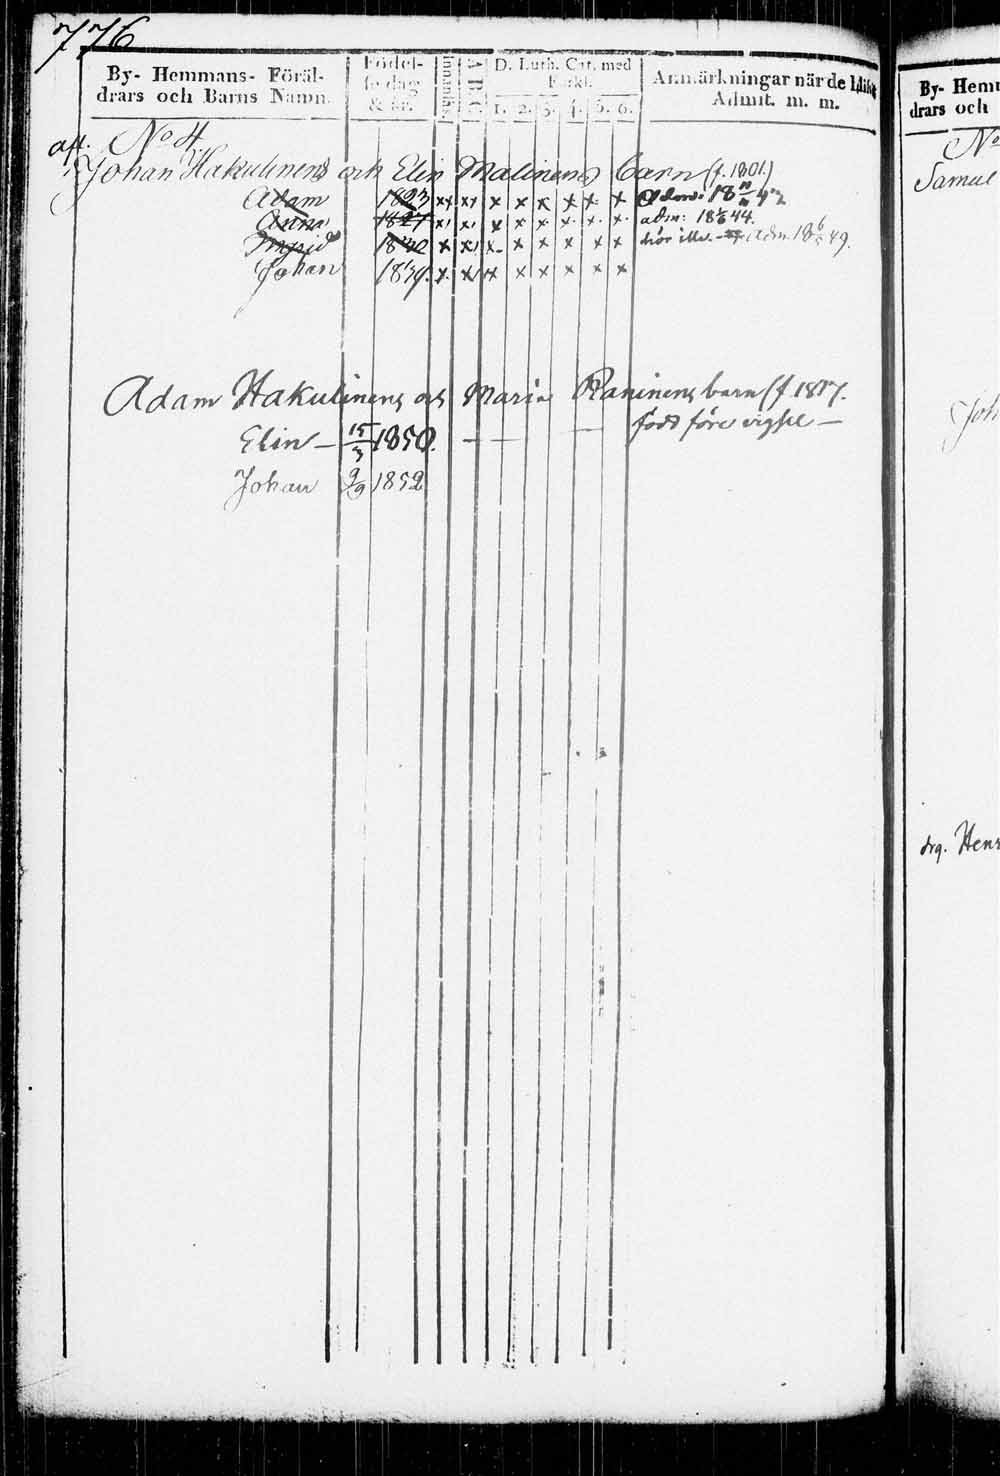 776
By- Hemmans- Föräl-
drars och Barns Namn.
Födel-
sedag
& år.
Innanläs.
A B C.
D. Luth. Cat. med
Förkl.
1. 2. 3. 4. 5. 6.
Anmärkningar när de blifv.
Admit. m. m.
No 4.
Johan Hakulinens och Elin Malinens barn (f. 1801.)
Adam 1823 x x x x x x x x x Adm: 18 42
Anna 1827 x x x x x x x x x adm: 18 6/6 44.
Ingrid x x x x x x x x x adm. 18 6/5 49.
Johan 1839. x x x x x x x x x
Adam Hakulinens och Maria Raninens barn (f 1817.
Elin — 15/3 1850. — — — född före vigsel —
Johan 2/9 1852
By- Hemm
drars och
No
Samuel
Joh
drg. Henr